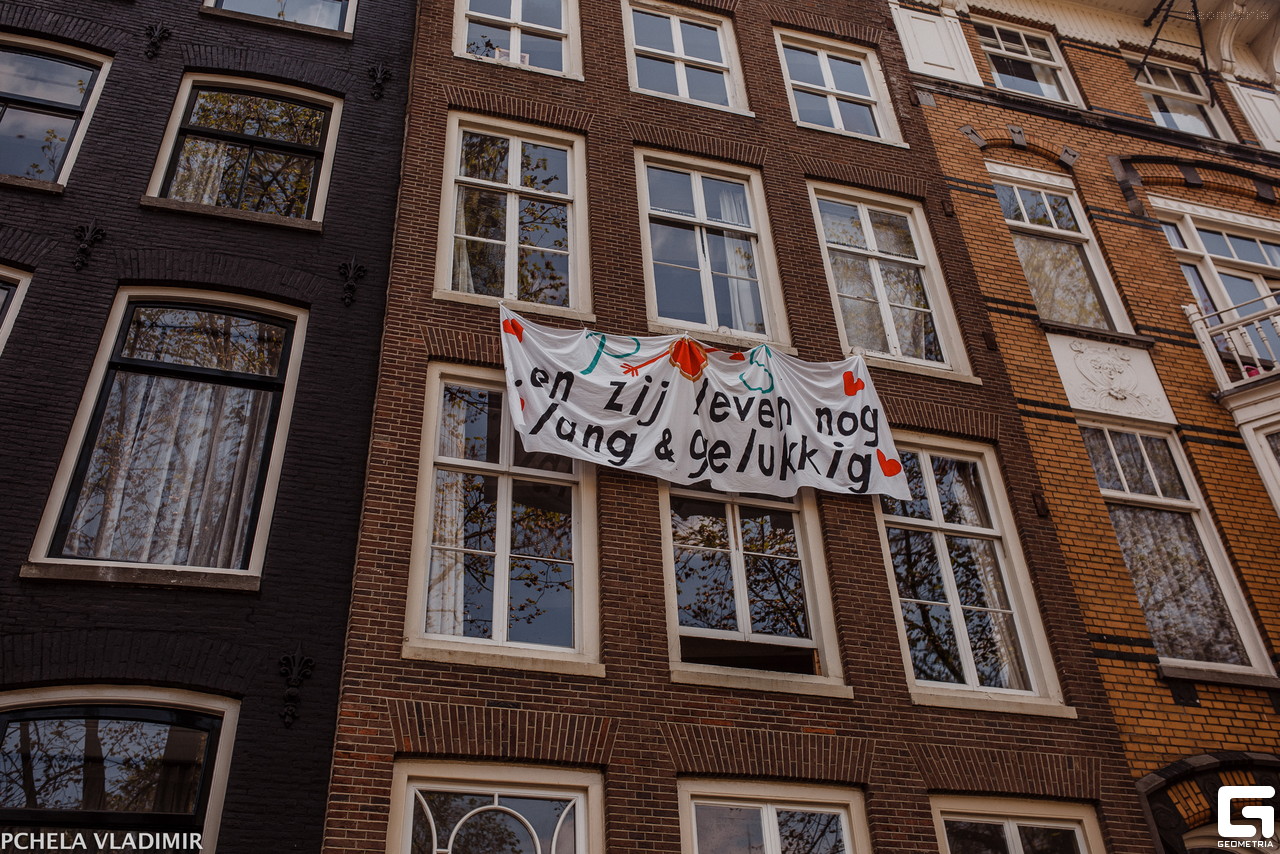 Geometria
P S
en zij leven nog
lang & gelukkig
PCHELA VLADIMIR
GEOMETRIA